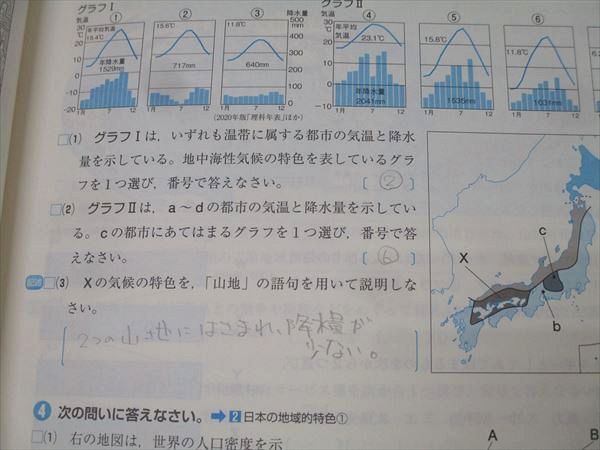 グラフⅠ
グラフⅡ
気温 ① ② ③ 降水量
30℃ 20 10 0 -10 -20
年平均気温 15.4℃
年降水量 1529mm
1月 7 12
15.6℃
717mm
1月 7 12
11.8℃
640mm
1月 7 12
500mm 400 300 200 100 0
(2020年版「理科年表」ほか)
気温 ④ ⑤ ⑥
30℃ 20 10 0 -10
年平均気温 23.1℃
年降水量 2041mm
1月 7 12
15.8℃
1535mm
1月 7 12
11.8℃
1031mm
1月 7 12
□(1) グラフⅠは，いずれも温帯に属する都市の気温と降水
量を示している。地中海性気候の特色を表しているグラ
フを1つ選び，番号で答えなさい。 〔 ② 〕
□(2) グラフⅡは，a～dの都市の気温と降水量を示してい
る。cの都市にあてはまるグラフを1つ選び，番号で答
えなさい。 〔 ⑥ 〕
記述 □(3) Xの気候の特色を，「山地」の語句を用いて説明しな
さい。
〔 2つの山地にはさまれ、降糧が
少ない。 〕
X
c
b
④ 次の問いに答えなさい。 ➡ 2 日本の地域的特色①
□(1) 右の地図は，世界の人口密度を示
A
B